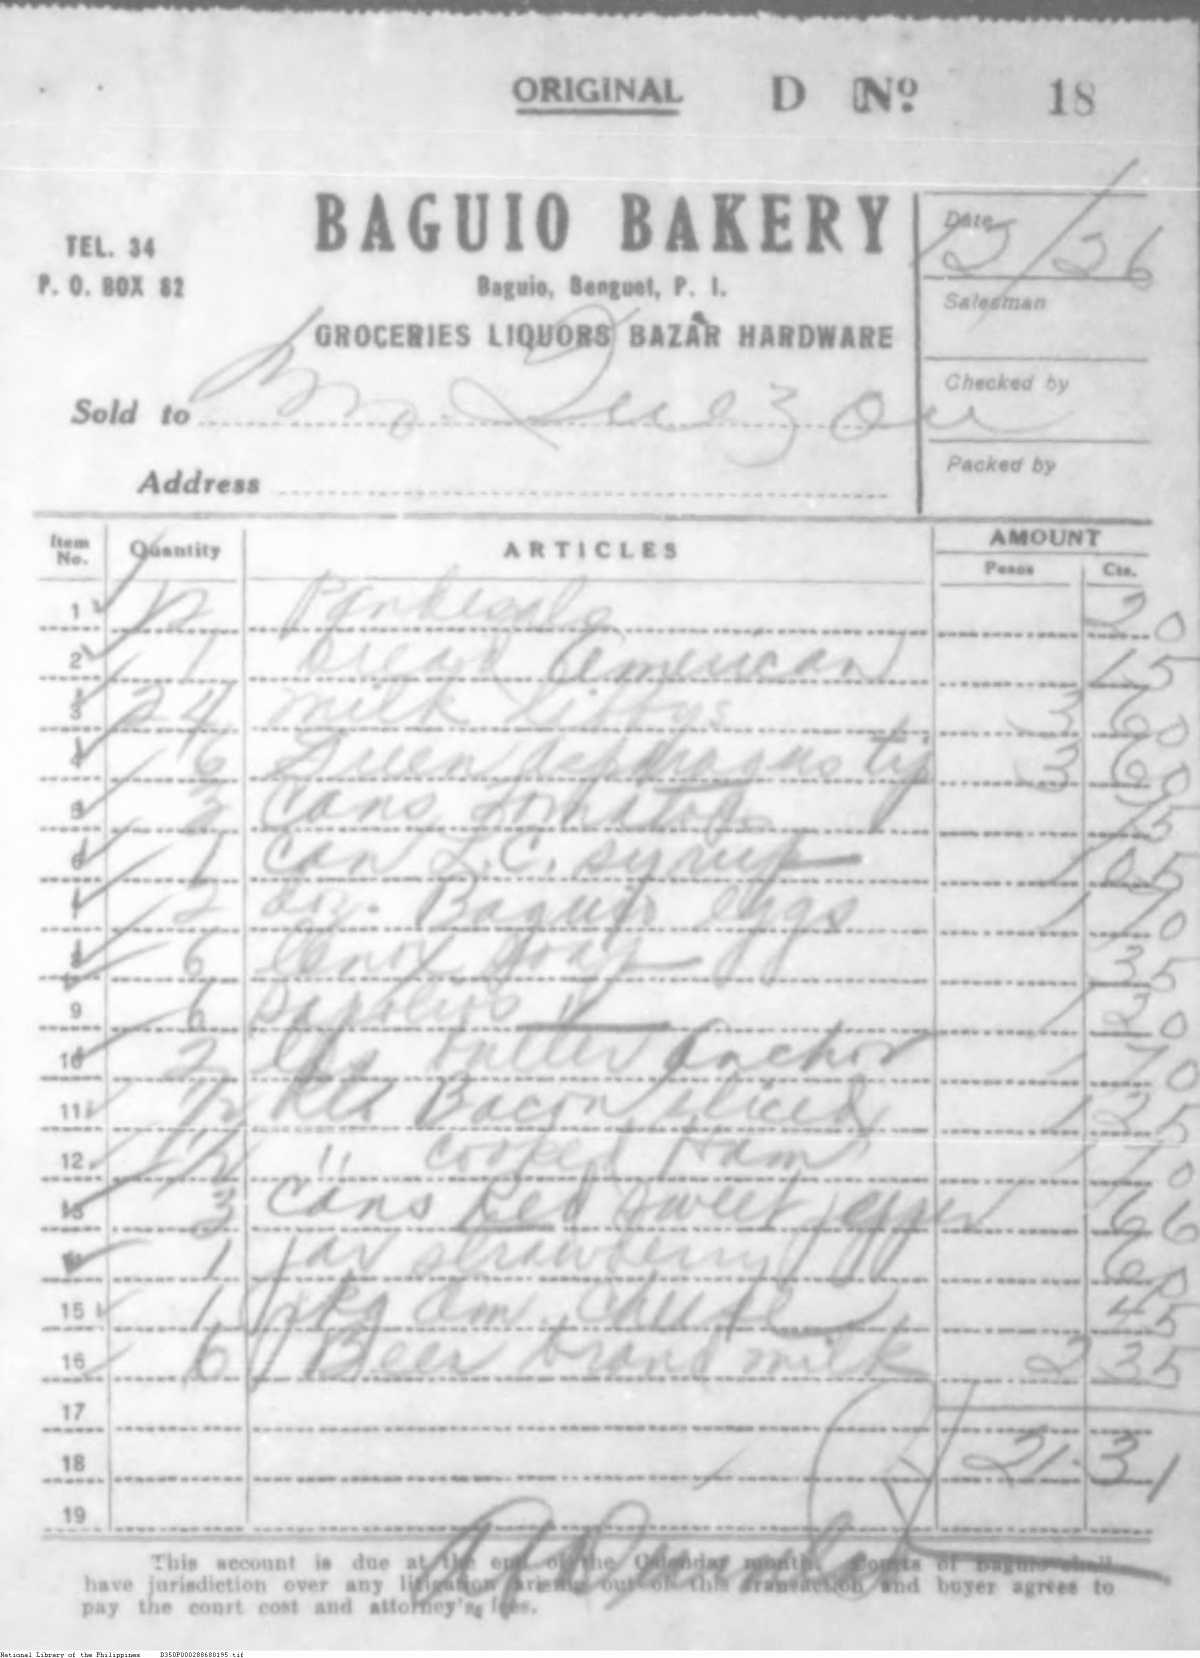 ORIGINAL D No. 18
BAGUIO BAKERY
TEL. 34
P. O. BOX 82
Baguio, Benguet, P. I.
GROCERIES LIQUORS BAZAR HARDWARE
Date 12/26
Salesman
Checked by
Packed by
Sold to Mr. Quezon
Address
Item No. Quantity ARTICLES AMOUNT
Pesos Cts.
1 12 Pandesals 20
2 1 Bread American 15
3 24 milk Libbys 3 60
4 6 Green asparagus tip 3 60
5 3 cans Tomatoes 75
6 1 can L.C. syrup 1 05
7 2 doz. Baguio eggs 1 70
8 6 Lenox soap 35
9 6 Sapolios 1 20
10 2 lbs butter Anchor 1 70
11 1/2 lbs Bacon sliced 1 25
12 1 1/2 " cooked Ham 1 70
13 3 cans Red sweet pepper 66
14 1 jar strawberry 60
15 1 pkg Am. cheese 45
16 6 Bear brand milk 2 35
17
18 21.31
19
This account is due at the end of the Calendar month. Courts of Baguio shall
have jurisdiction over any litigation arising out of this transaction and buyer agrees to
pay the court cost and attorney's fees.
National Library of the Philippines D350P000288680195.tif